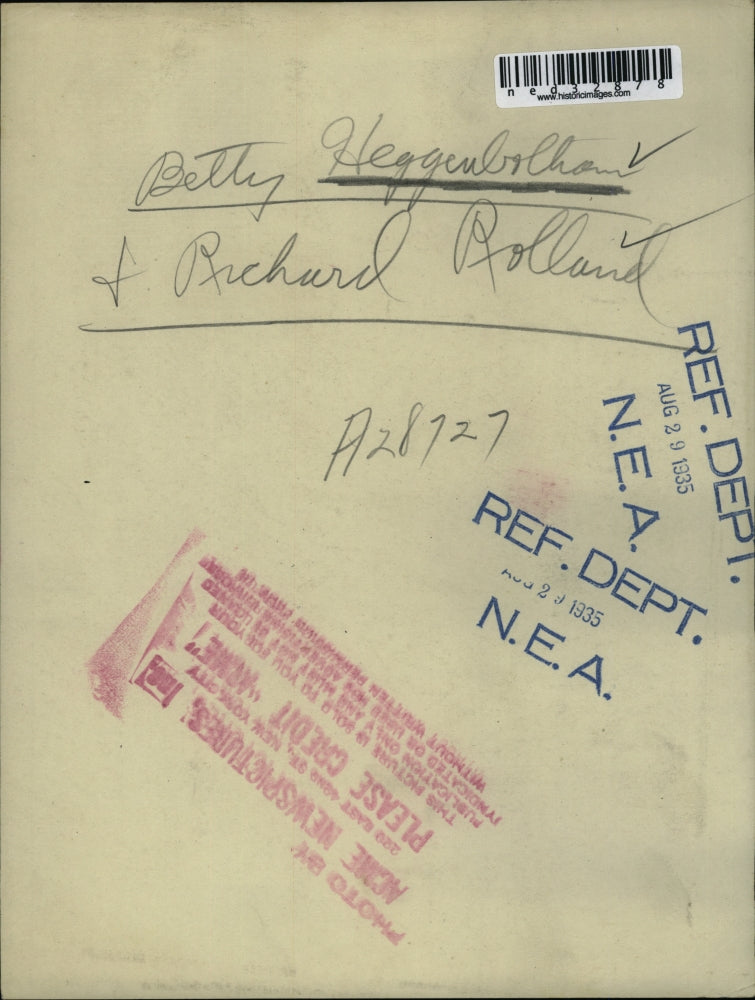 ned32878
www.historicimages.com
Betty Heggenbotham
& Richard Rolland
A28727
REF. DEPT.
AUG 29 1935
N.E.A.
REF. DEPT.
AUG 29 1935
N.E.A.
PHOTO BY
ACME NEWSPICTURES, Inc.
220 EAST 42ND ST., NEW YORK CITY
PLEASE CREDIT "ACME"
THIS PICTURE IS SOLD TO YOU FOR YOUR
PUBLICATION ONLY AND MUST NOT BE LOANED
SYNDICATED OR USED FOR ADVERTISING PURPOSES
WITHOUT WRITTEN PERMISSION FROM